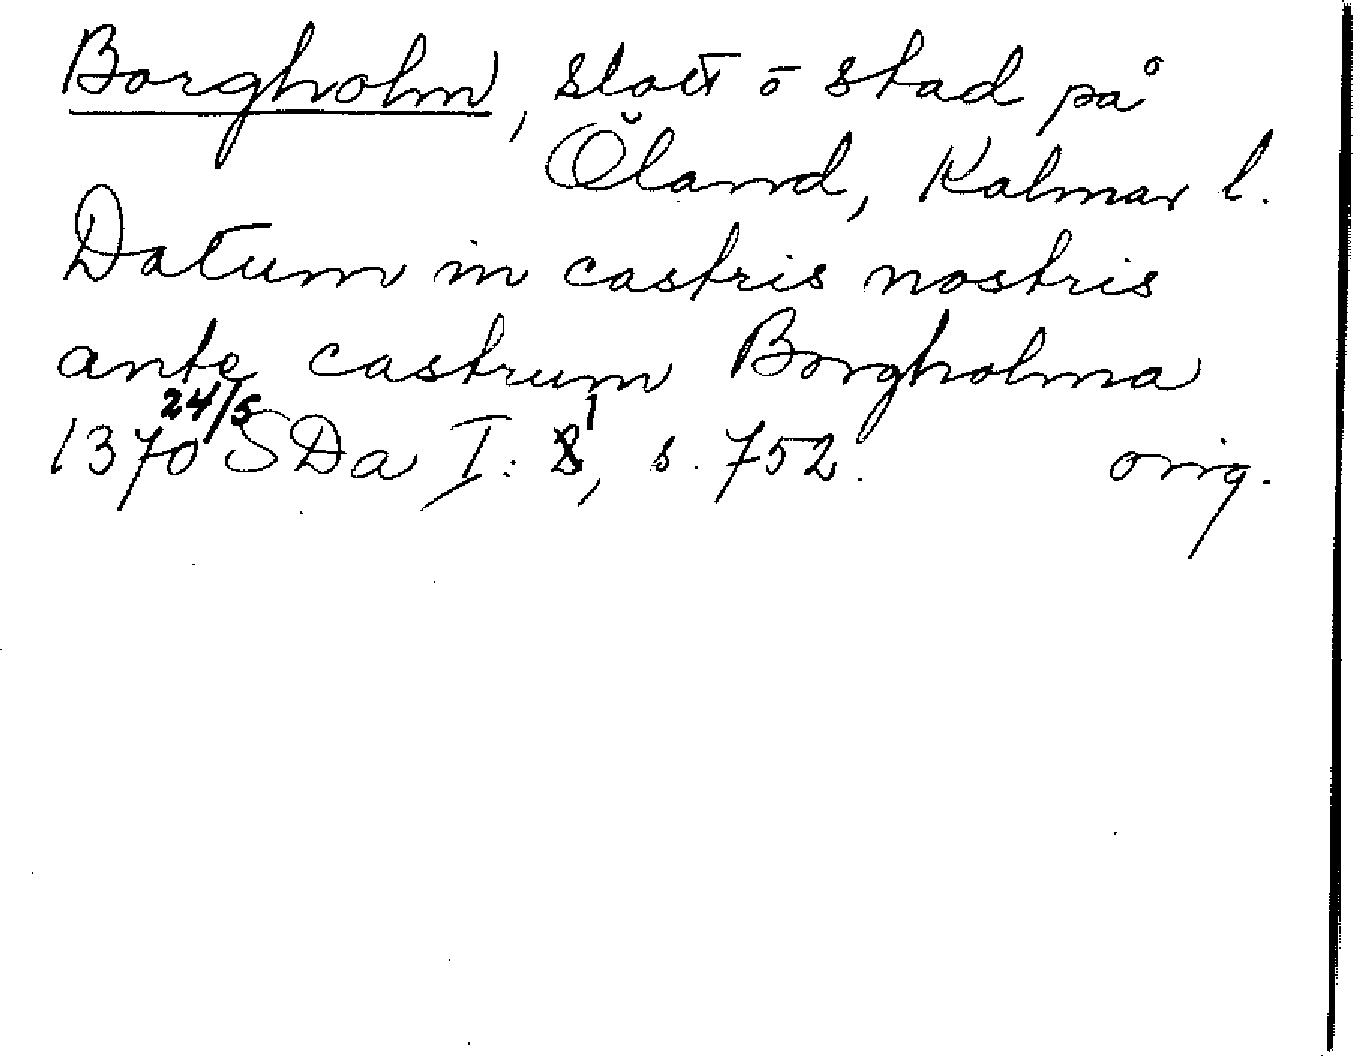 Borgholm, slott o stad på
Öland, Kalmar l.
Datum in castris nostris
ante castrum Borgholma
1370 24/5 SDa I: 1, s. 752. orig.